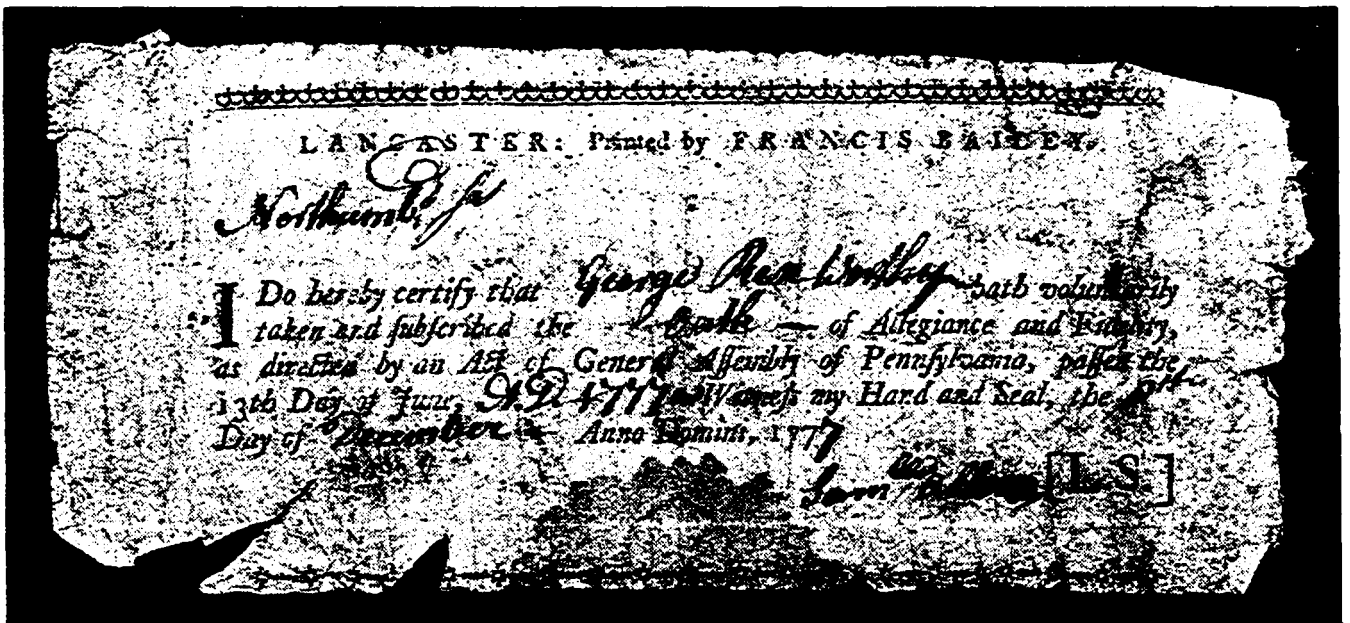 LANCASTER: Printed by FRANCIS BAILEY.
Northumbd. ss
I Do hereby certify that George hath voluntarily
taken and subscribed the — Oath — of Allegiance and Fidelity,
as directed by an Act of General Assembly of Pennsylvania, passed the
13th Day of June, A.D. 1777. Witness my Hand and Seal, the
Day of December — Anno Domini, 1777
Saml. [L.S.]